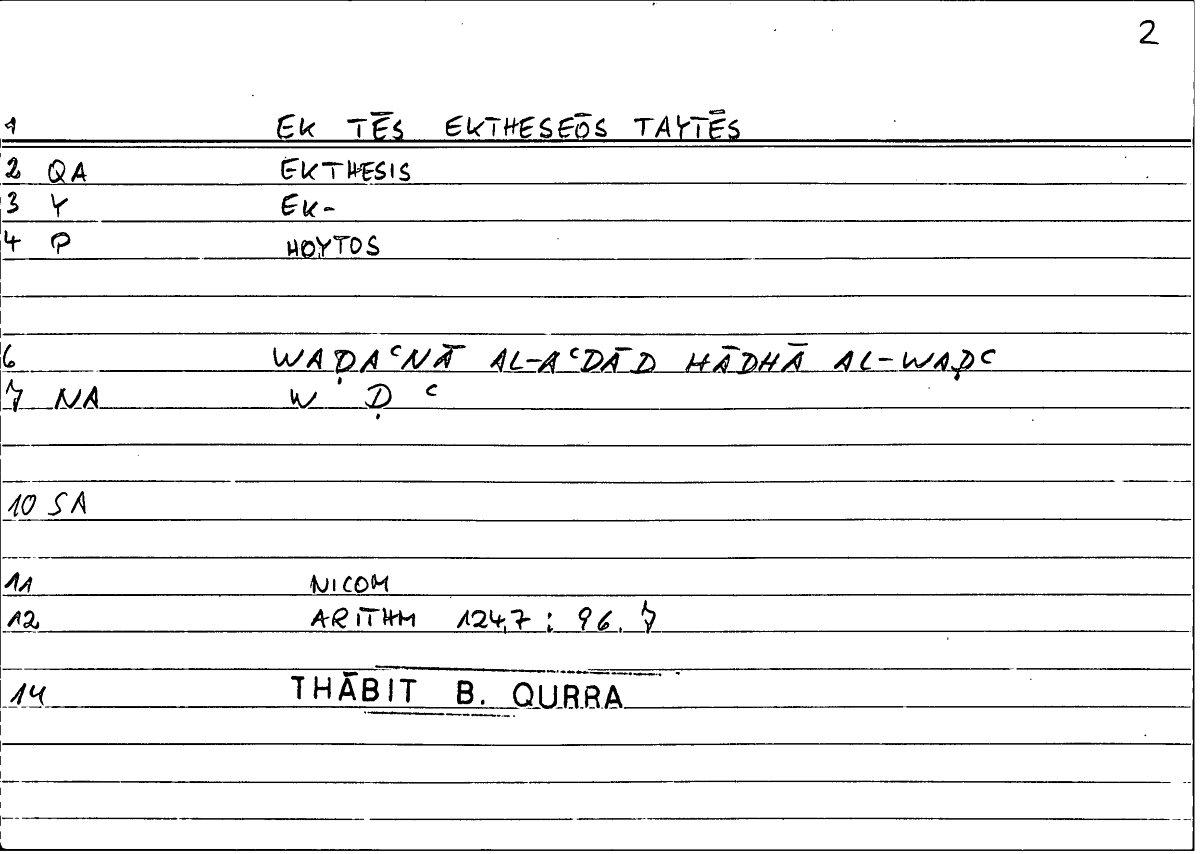 2
1 EK TĒS EKTHESEŌS TAYTĒS
2 QA EKTHESIS
3 Y EK-
4 P HOYTOS
6 WAḌAᶜNĀ AL-AᶜDĀD HĀDHĀ AL-WAḌᶜ
7 NA W Ḍ ᶜ
10 SA
11 NICOM
12 ARITHM 124,7 : 96.7
14 THĀBIT B. QURRA